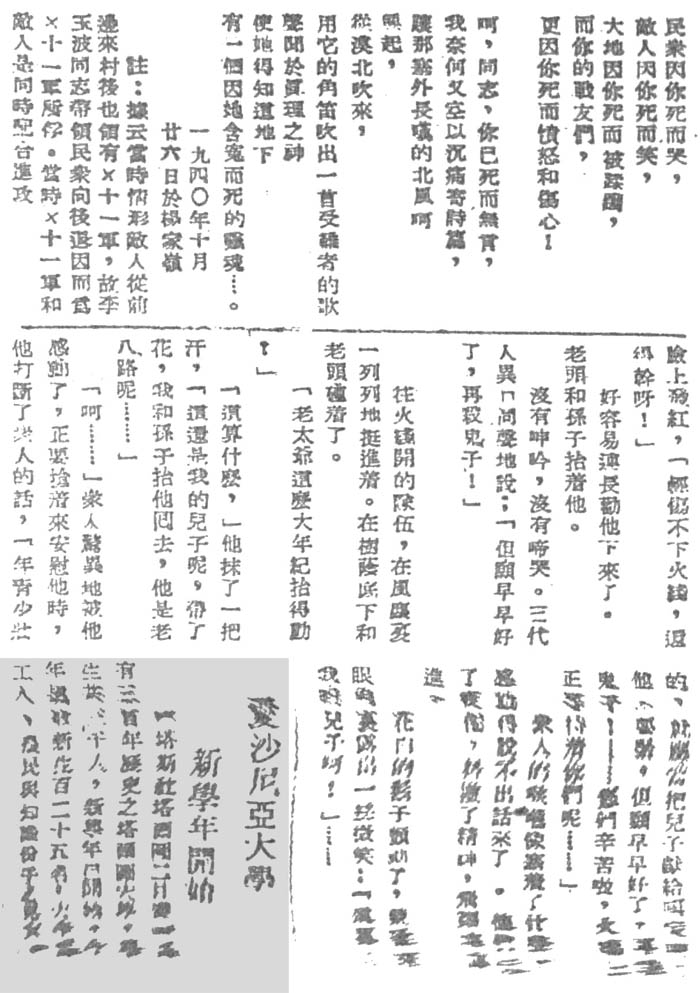 民衆因你死而哭，
敵人因你死而笑，
大地因你死而被蹂躪，
而你的戰友們，
更因你死而憤怒和傷心！
呵，同志，你已死而無言，
我奈何又空以沉痛寄詩篇，
讓那塞外長嘆的北風呵
興起，
從漠北吹來，
用它的角笛吹出一首受難者的歌
聲聞於眞理之神
使她得知道地下
有一個因她含冤而死的靈魂…。
一九四〇年十月
廿六日於楊家嶺
註：據云當時情形敵人從前
邊來村後也傾有×十一軍，故李
玉波同志帶領民衆向後退因而爲
×十一軍所俘。當時×十一軍和
敵人是同時配合進攻
臉上發紅，「輕傷不下火綫，還
得幹呀！」
好容易連長勸他下來了。
老頭和孫子抬着他。
沒有呻吟，沒有啼哭。三代
人異口同聲地說：「但願早早好
了，再殺鬼子！」
往火綫開的隊伍，在風塵裏
一列列地挺進着。在樹蔭底下和
老頭碰着了。
「老太爺這麼大年紀抬得動
？」
「這算什麼，」他抹了一把
汗，「這還是我的兒子呢，帶了
花，我和孫子抬他囘去，他是老
八路呢………」
「呵………」衆人驚異地被他
感動了，正要搶着來安慰他時，
他打斷了衆人的話，「年靑少壯
的，就應當把兒子獻給國家
他，但願早早好了，再
鬼子！……你們辛苦啦，
正等待着你們呢……」
衆人的喉嚨像塞着什麼
感動得說不出話來了。
了疲倦，抖擻了精神，飛
進。
花白的鬍子顫動了，
眼角裏露出一絲微笑：「
我的兒子呵！」……
愛沙尼亞大學
新學年開始
【塔斯社塔爾圖二日電】
有三百年歷史之塔爾圖大學，
生 千人，新學年已開始，今
年 新生百二十五名，
工人、農民與知識份子